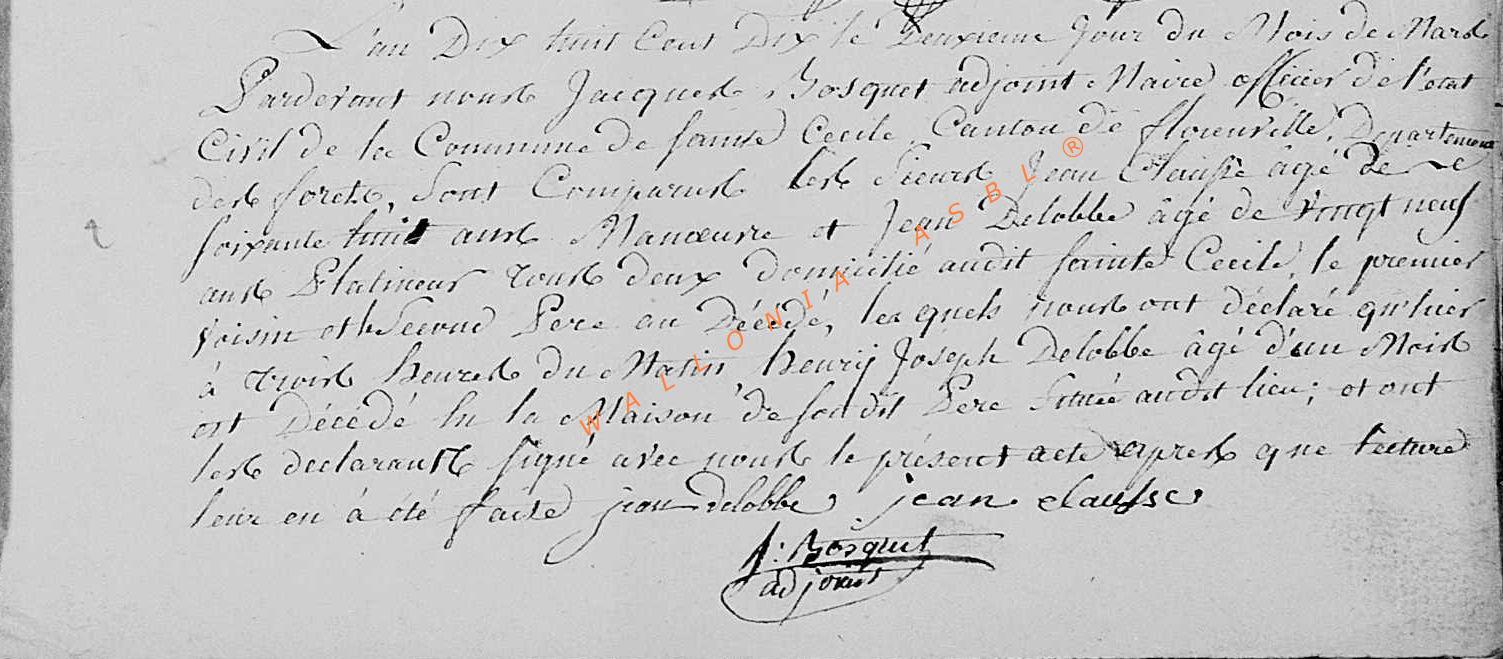 L'an Dix huit Cent Dix le Deuxieme Jour du Mois de Mars
Pardevant nous Jacques Bosquet adjoint Maire officier de l'etat
Civil de la Commune de sainte Cecile, Canton de florenville, Departement
des forets, sont Comparus les sieurs Jean Clausse âgé de
soixante huit ans Manoeuvre et Jean Delobbe âgé de vingt neuf
ans Platineur tous deux domicilié audit sainte Cecile, le premier
voisin et le Second Pere au Décédé, les quels nous ont déclaré qu'hier
à trois heures du Matin, henry Joseph Delobbe âgé d'un Mois
est Décédé En la Maison de son dit Pere située audit lieu; et ont
les declarants signé avec nous le présent acte apres que lecture
leur en à été faite jean delobbe jean clausse
J: Bosquet
adjoint
WALLONIA ASBL ®